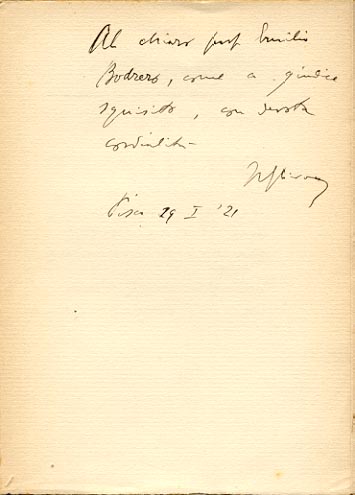 Al chiaro prof Emilio
Bodrero, come a giudice
squisito, con devota
cordialità
Pisa 29 I '21